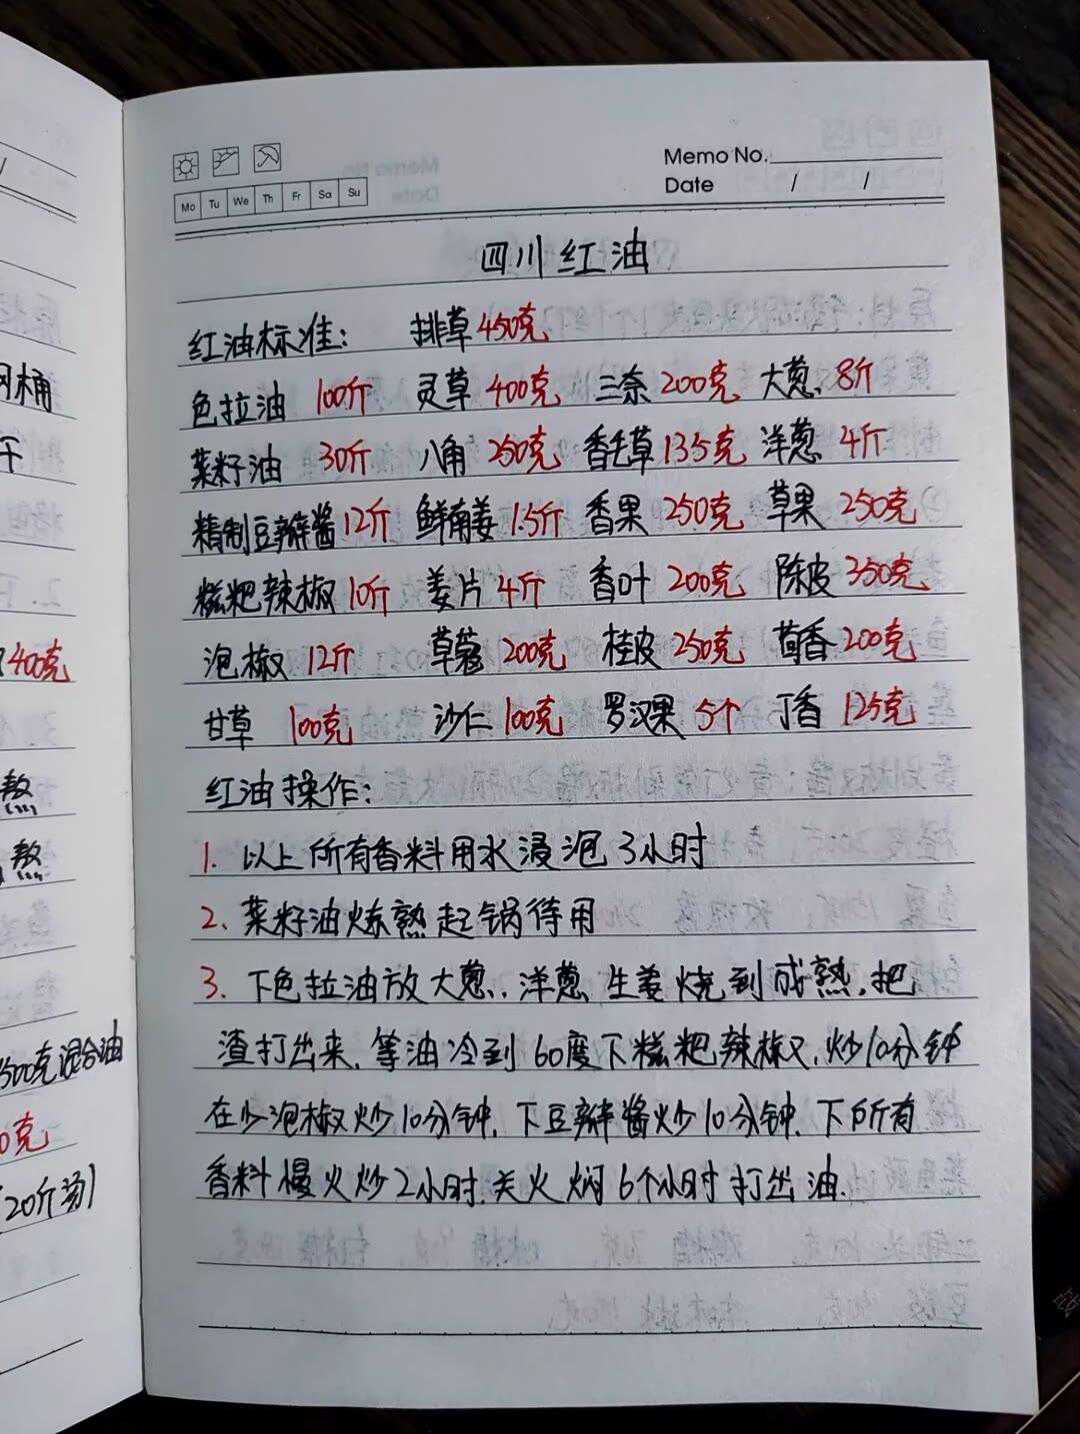 Memo No.
Date / /
Mo Tu We Th Fr Sa Su
四川红油
红油标准: 排草450克
色拉油 100斤 灵草400克 三奈200克 大葱 8斤
菜籽油 30斤 八角250克 香毛草135克 洋葱 4斤
精制豆瓣酱12斤 鲜南姜1.5斤 香果250克 草果250克
糍粑辣椒10斤 姜片4斤 香叶200克 陈皮350克
泡椒 12斤 草蔻200克 桂皮250克 茴香200克
甘草 100克 沙仁100克 罗汉果5个 丁香125克
红油操作:
1. 以上所有香料用水浸泡3小时
2. 菜籽油炼熟起锅待用
3. 下色拉油放大葱、洋葱 生姜烧到成熟,把
渣打出来,等油冷到60度下糍粑辣椒,炒10分钟
在少泡椒炒10分钟,下豆瓣酱炒10分钟,下所有
香料慢火炒2小时,关火焖6个小时打出油.
桶
400克
熬
熬
500克混合油
0克
20斤汤)